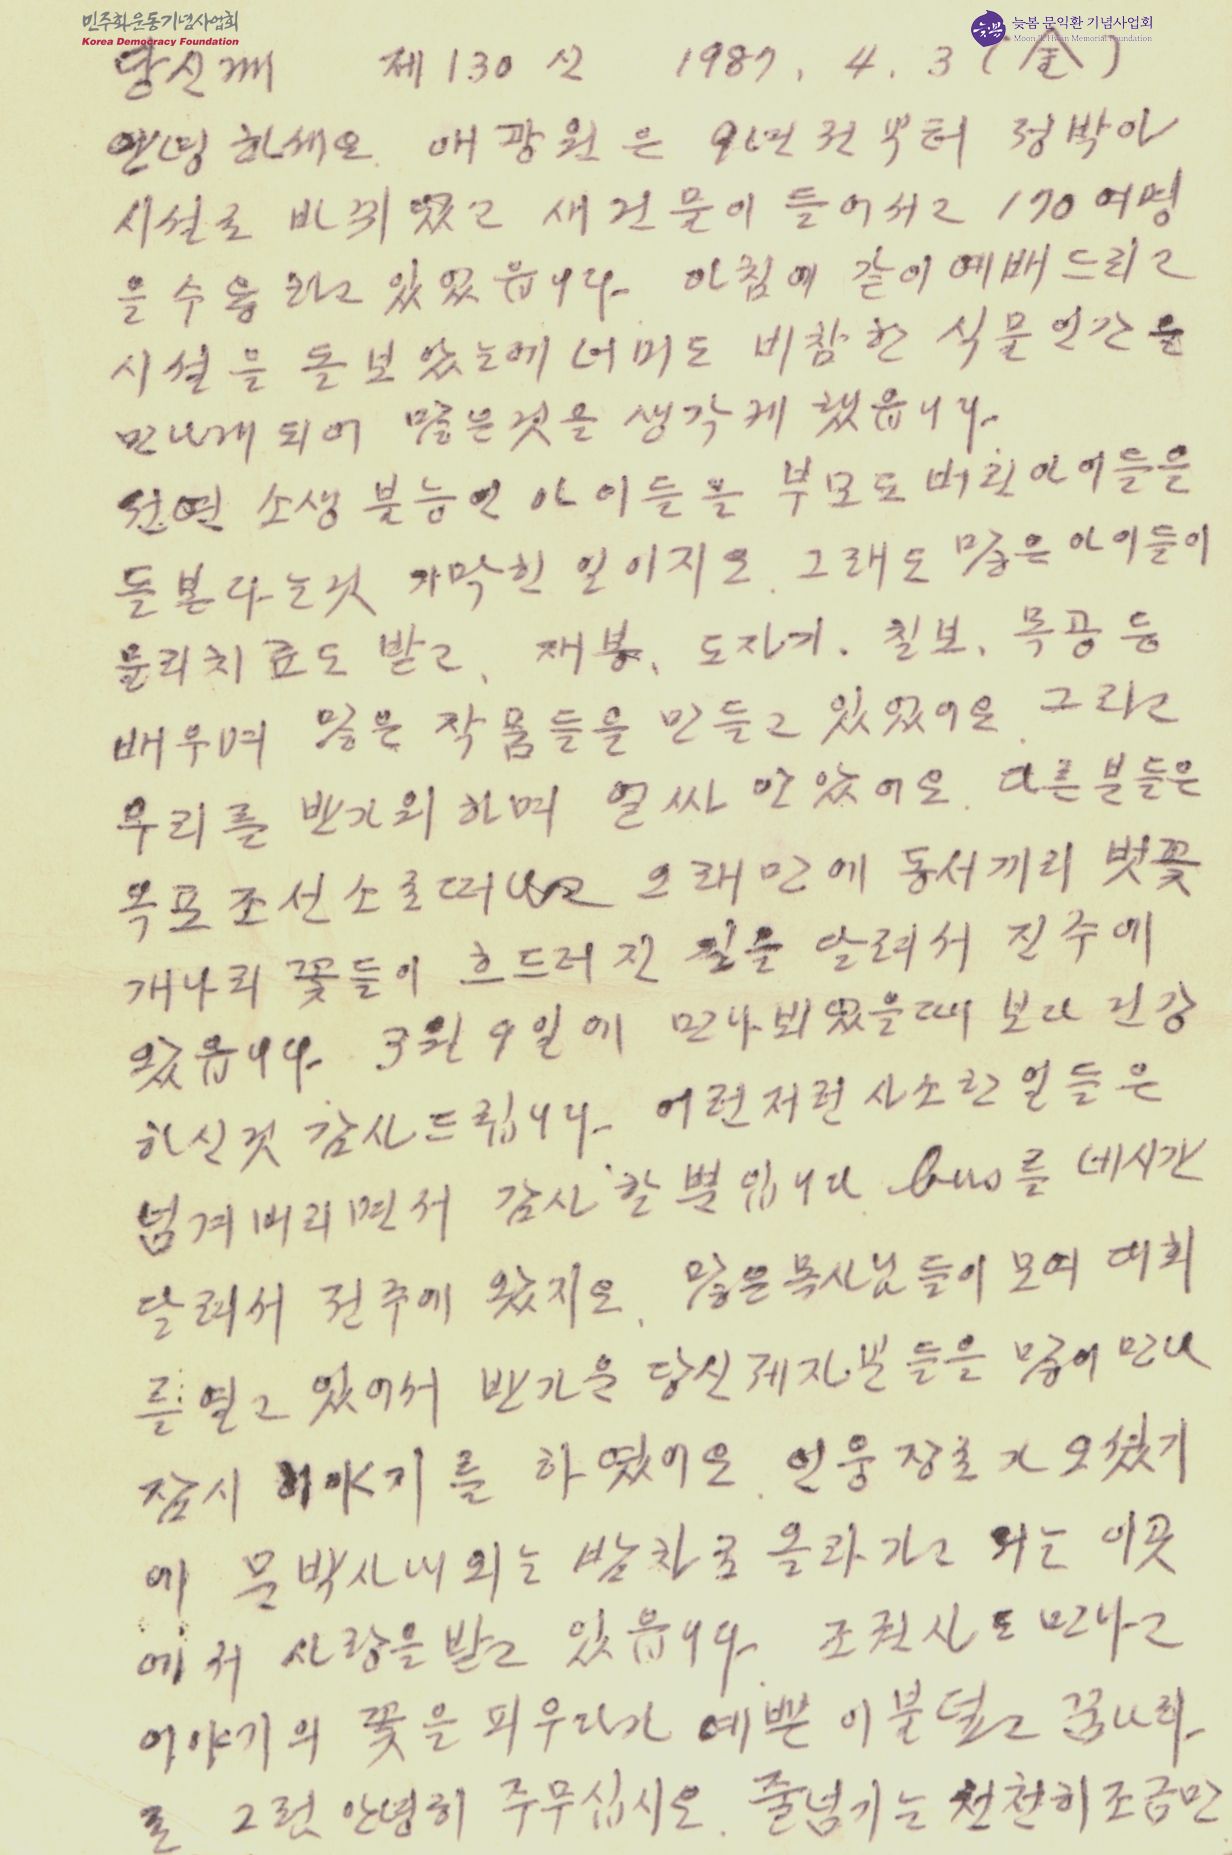 민주화운동기념사업회
Korea Democracy Foundation
늦봄 문익환 기념사업회
Moon Ik Hwan Memorial Foundation
당신께 제130신 1987. 4. 3 (金)
안녕하세요. 애광원은 9년전부터 정박아
시설로 바뀌었고 새건물이 들어서고 170여명
을 수용하고 있었읍니다. 아침에 같이 예배드리고
시설을 돌보았는데 너머도 비참한 식물인간을
만나게되어 많은것을 생각케 했읍니다.
전연 소생 불능인 아이들을 부모도 버린아이들을
돌본다는것 기막힌 일이지오. 그래도 많은아이들이
물리치료도 받고, 재봉, 도자기. 칠보, 목공 등
배우며 많은 작품들을 만들고 있었어요. 그리고
우리를 반가워하며 얼싸 안았어요. 다른분들은
목포조선소로떠나고 오래만에 동서끼리 벗꽃
개나리 꽃들이 흐드러진 길을 달려서 진주에
왔읍니다. 3월 9일에 만나뵈었을때 보다 건강
하신것 감사드립니다. 이런저런사소한일들은
넘겨버리면서 감사할뿐입니다. bus를 네시간
달려서 전주에 왔지오. 많은목사님들이 모여 대회
를 열고 있어서 반가운 당신제자분들을 많이 만나
잠시 이야기를 하였어요. 인웅장로가 오셨기
에 문박사내외는 밤차로 올라가고 저는 이곳
에서 사랑을받고 있읍니다. 조권사도 만나고
이야기의 꽃을 피우다가 예쁜 이불덮고 꿈나라
로 그럼 안녕히 주무십시오. 줄넘기는 천천히조금만